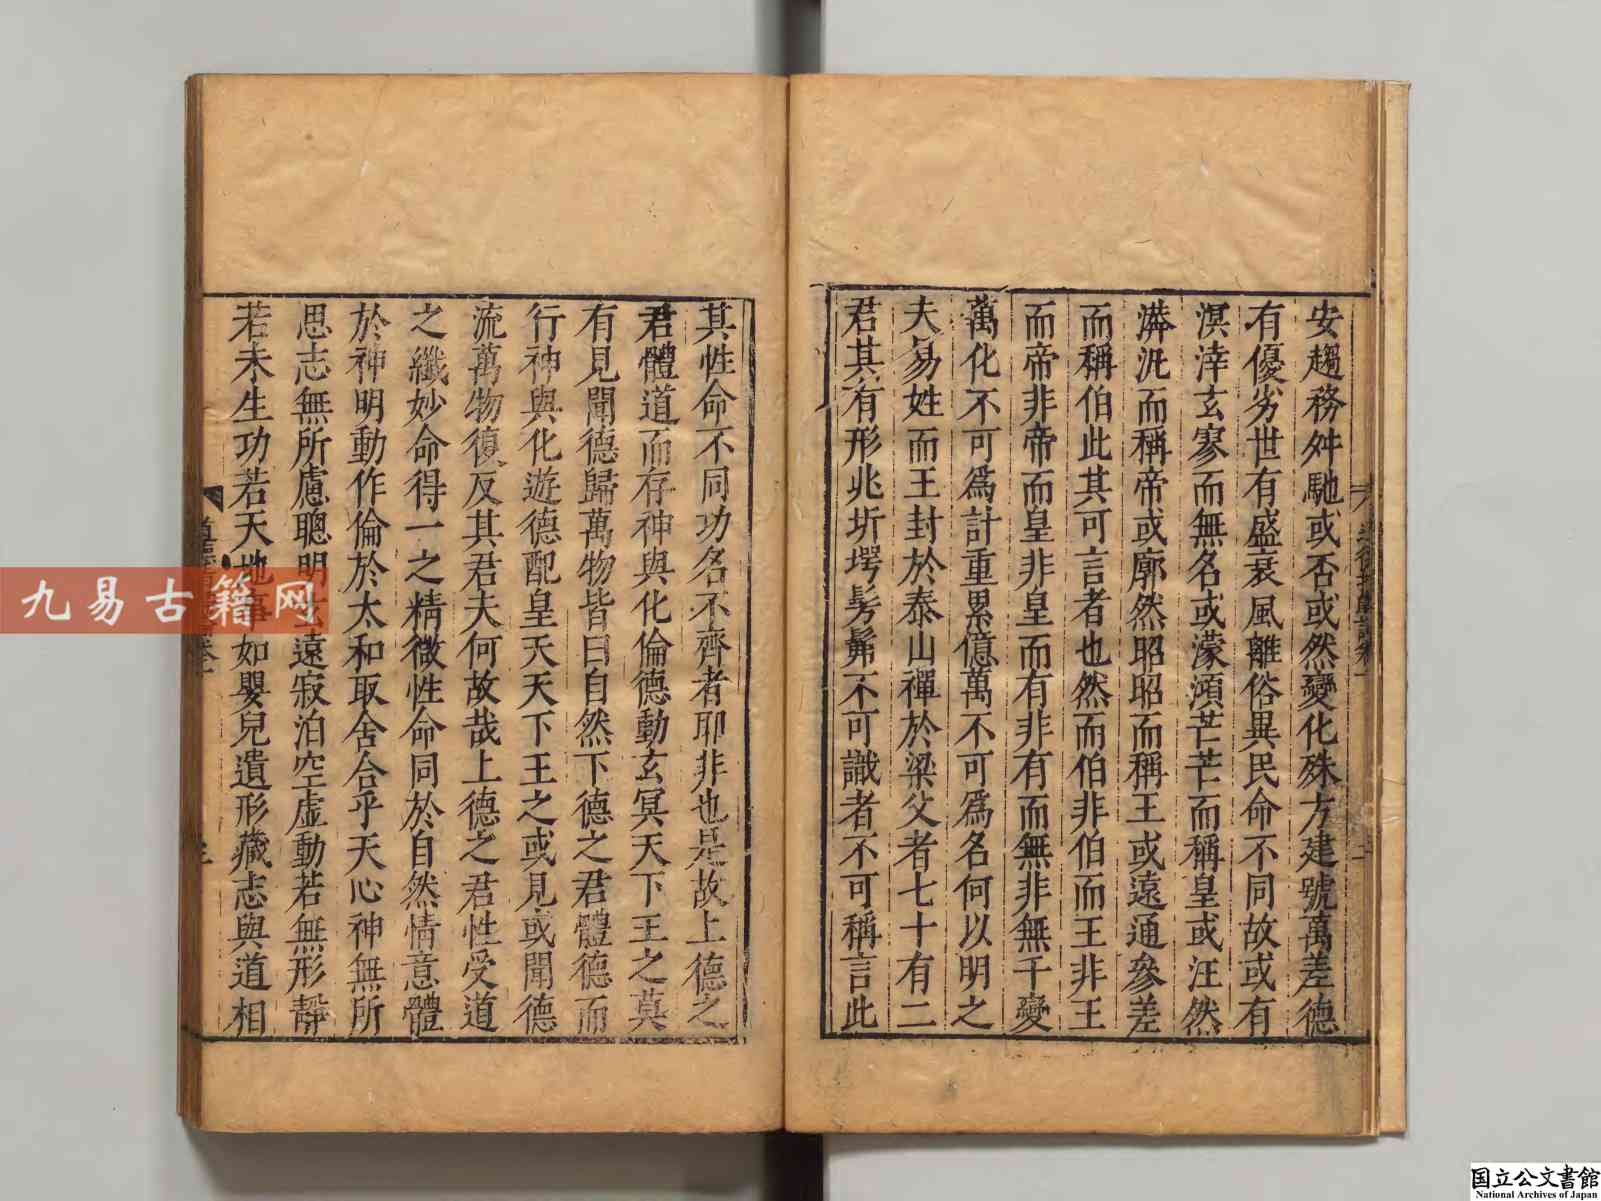 安趨務舛馳或否或然變化殊方建號萬差德
有優劣世有盛衰風離俗異民命不同故或有
溟涬玄寥而無名或濛澒芒芒而稱皇或汪然
漭沆而稱帝或廓然昭昭而稱王或遠通參差
而稱伯此其可言者也然而伯非伯而王非王
而帝非帝而皇非皇而有非有而無非無千變
萬化不可爲計重累億萬不可爲名何以明之
夫易姓而王封於泰山禪於梁父者七十有二
君其有形兆圻堮髣髴不可識者不可稱言此
其性命不同功名不齊者耶非也是故上德之
君體道而存神與化倫德動玄冥天下王之莫
有見聞德歸萬物皆曰自然下德之君體德而
行神與化遊德配皇天天下王之或見或聞德
流萬物復反其君夫何故哉上德之君性受道
之纖妙命得一之精微性命同於自然情意體
於神明動作倫於太和取舍合乎天心神無所
思志無所慮聰明遠寂泊空虛動若無形靜
若未生功若天地事如嬰兒遺形藏志與道相
九易古籍网
国立公文書館
National Archives of Japan